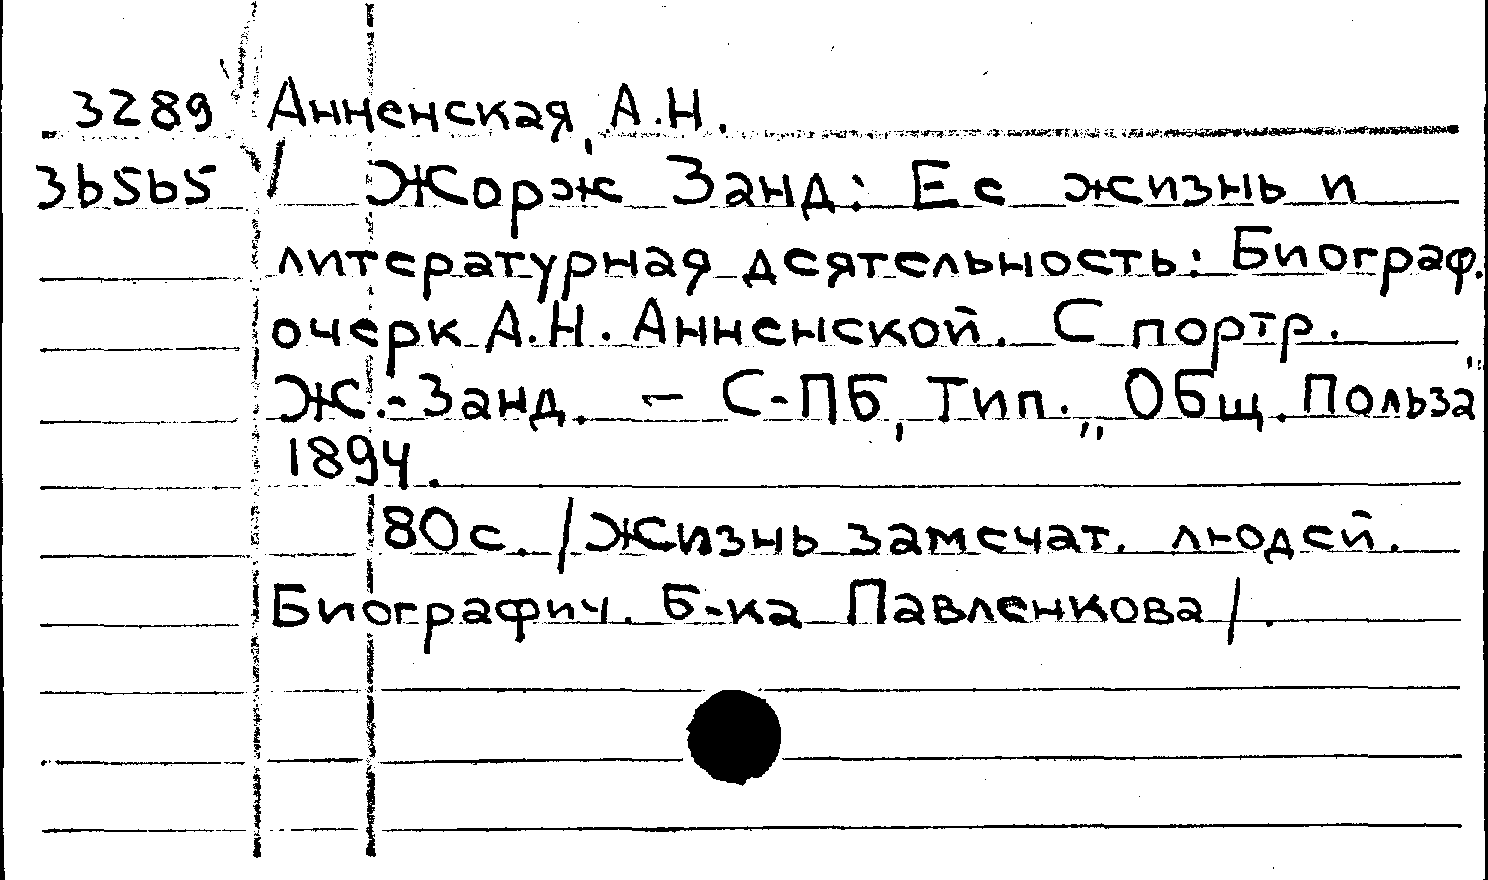 3289 Анненская, А.Н.
3b5b5 / Жорж Занд: Ее жизнь и
литературная деятельность: Биограф.
очерк А.Н. Анненской. С портр.
Ж.-Занд. – С-ПБ, Тип. „Общ. Польза“,
1894.
80с. /Жизнь замечат. людей.
Биографич. Б-ка Павленкова/.